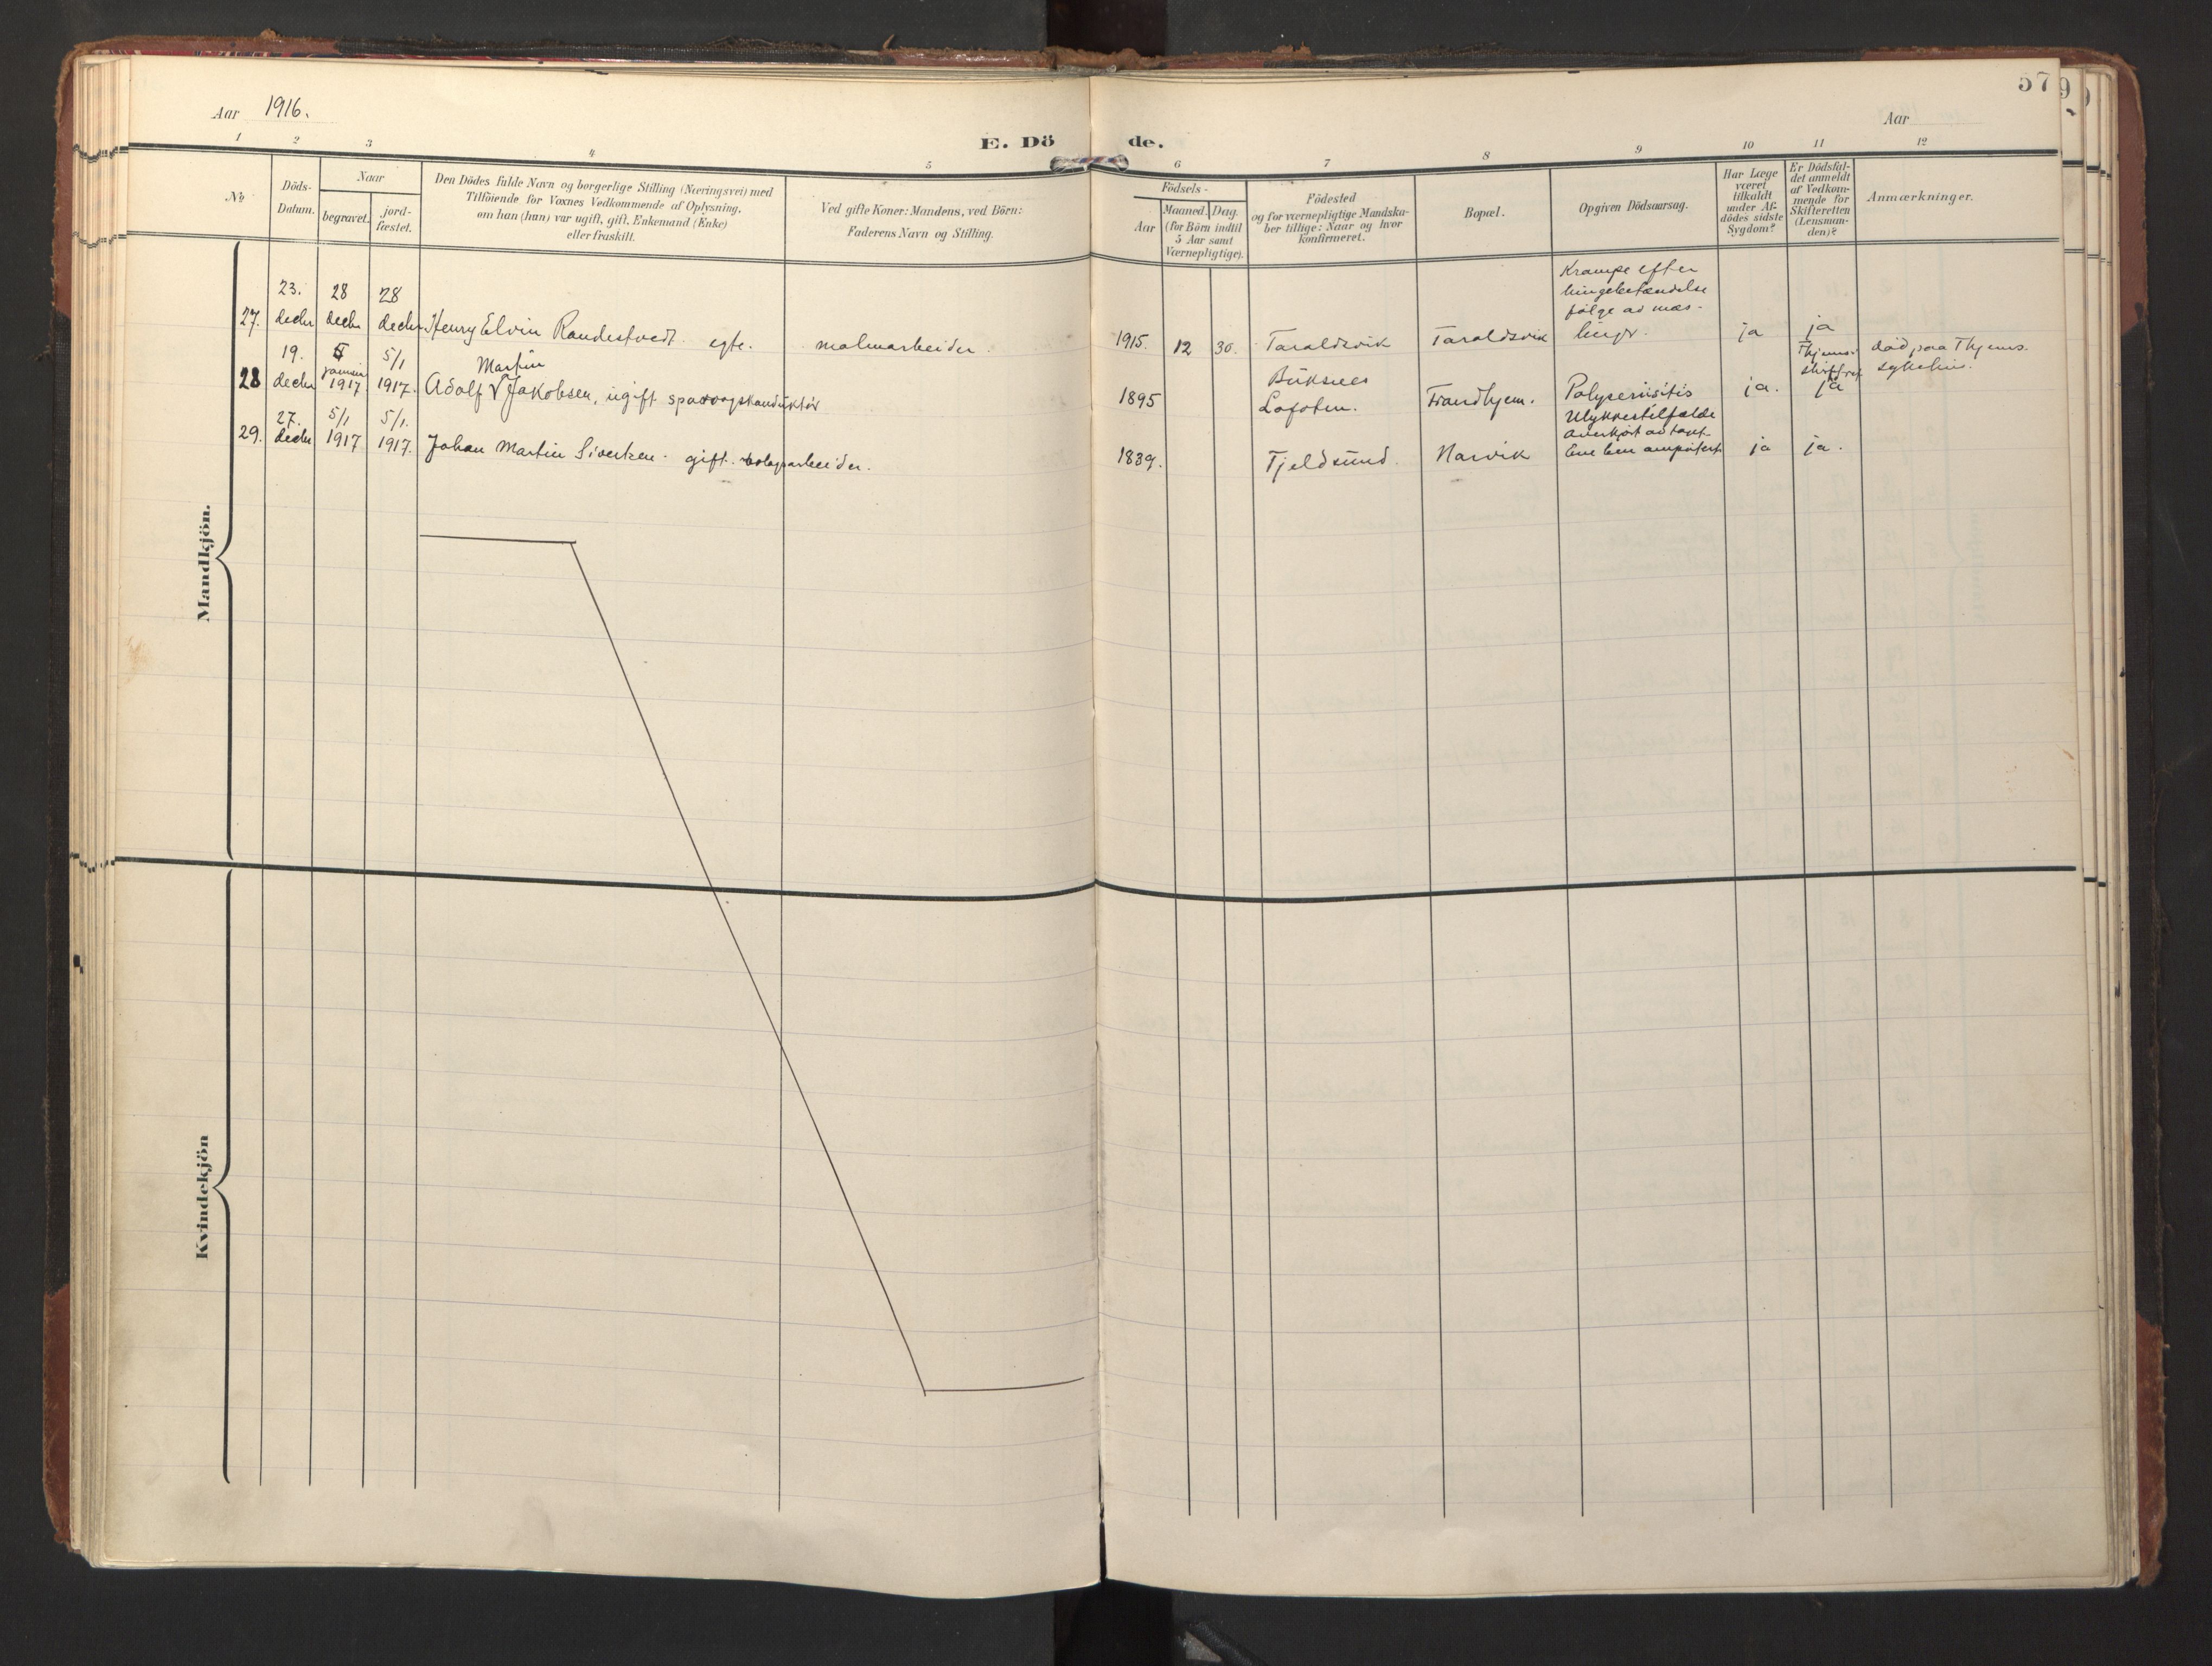 57
Aar 1916.
Aar
E. Dö de.
1 2 3 4 5 6 7 8 9 10 11 12
No
Döds-
Datum.
Naar
begravet.
jord-
fæstet.
Den Dödes fulde Navn og borgerlige Stilling (Næringsvei) med
Tilföiende for Voxnes Vedkommende af Oplysning,
om han (hun) var ugift, gift, Enkemand (Enke)
eller fraskilt.
Ved gifte Koner: Mandens, ved Börn:
Faderens Navn og Stilling.
Födsels-
Aar
Maaned. Dag.
(for Börn indtil
5 Aar samt
Værnepligtige).
Födested
og for værnepligtige Mandska-
ber tillige: Naar og hvor
konfirmeret.
Bopæl.
Opgiven Dödsaarsag.
Har Læge
været
tilkaldt
under Af-
dödes sidste
Sygdom?
Er Dödsfal-
det anmeldt
af Vedkom-
mende for
Skifteretten
(Lensman-
den)?
Anmærkninger.
Mandkjön.
27.
23.
decbr
28
decbr
28
decbr
Henry Elvin Randestvedt egte.
malmarbeider.
1915. 12 30.
Taraldsvik
Taraldsvik
Krampe efter
lungebetændelse
følge av mæs-
linger.
ja
ja
28
19.
decbr
januar
1917
5/1
1917.
Martin
Adolf V Jakobsen, ugift sporvogskonduktør
1895
Buksnes
Lofoten.
Trondhjem.
ja.
Thjems.
skifteret
ja
død paa Thjems.
sykehus.
29.
27.
decbr
5/1
1917
5/1.
1917.
Johan Martin Sivertsen. gift. bolagsarbeider.
1839.
Tjeldsund.
Narvik
Ulykkestilfælde
Overkjørt av toget.
Ene ben amputert.
ja
ja.
Kvindekjön